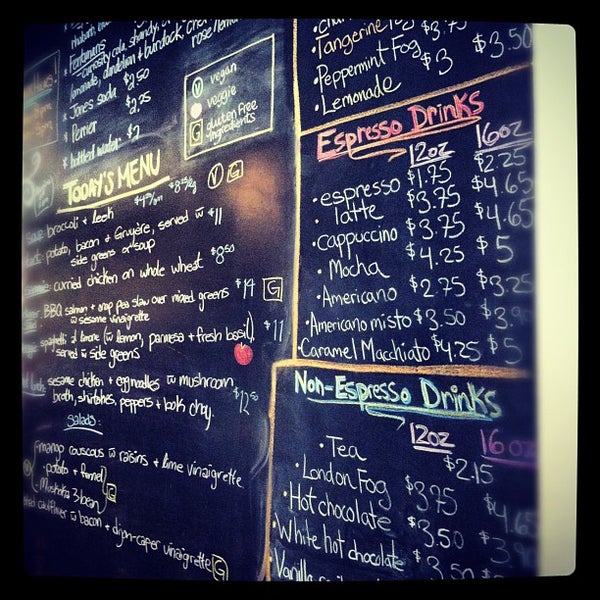 * Ferdinands
lemonade, dandelion + burdock,
rose lemo
* Jones soda $2.50
* Perrier $2.25
* bottled water $2
V vegan
veggie
G gluten free
ingredients
TODAY'S MENU V G
broccoli + leek
potato, bacon + Gruyère, served w $11
side greens or soup
curried chicken on whole wheat $8.50
BBQ salmon + snap pea slaw over mixed greens $14 G
w sesame vinaigrette
spaghetti al limone (w lemon, parmesa + fresh basil), $11
served w side greens
sesame chicken + egg noodles w mushroom $12.50
broth, shiitakes, peppers + bok choy.
Salads:
mango couscous w raisins + lime vinaigrette
• potato + fennel
• Muskoka 3 bean G
cauliflower w bacon + dijon-caper vinaigrette G
Tangerine $3.75
• Peppermint Fog $3 $3.50
• Lemonade
Espresso Drinks
12oz 16oz
• espresso $1.75 $2.25
latte $3.75 $4.65
• cappuccino $3.75 $4.65
• Mocha $4.25 $5
• Americano $2.75 $3.25
• Americano misto $3.50 $3.9
• Caramel Macchiato $4.25 $5
Non-Espresso Drinks
12oz 16oz
• Tea $2.15
• London Fog $3.75 $4.65
• Hot chocolate $3.50
• White hot chocolate $3.50
• Vanilla